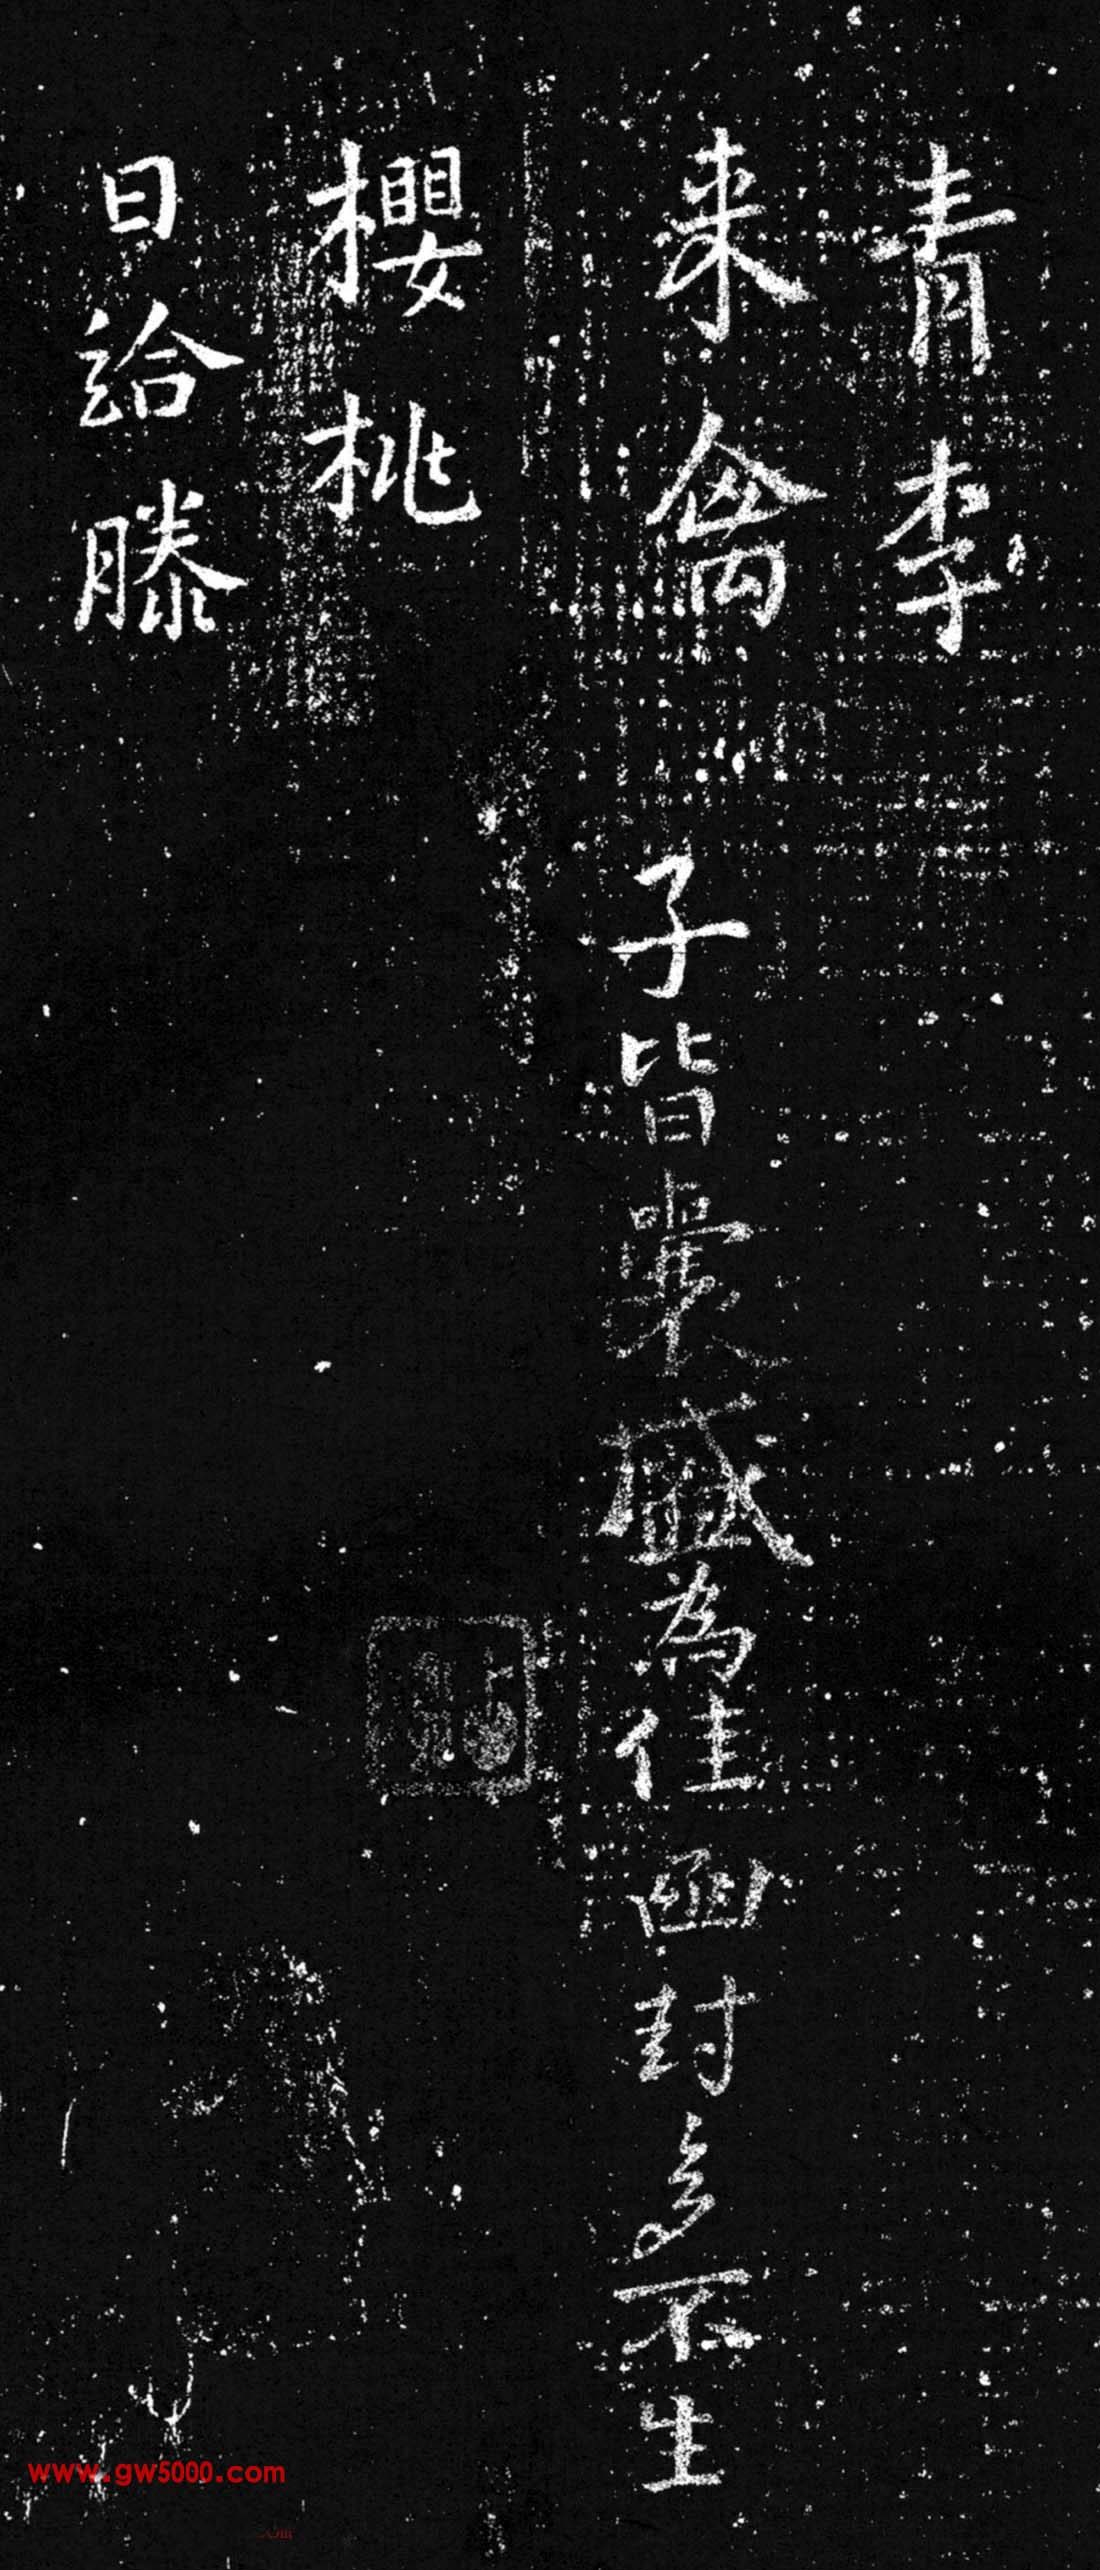 青李
来禽
子皆囊盛為佳函封多不生
櫻桃
日給滕
www.gw5000.com